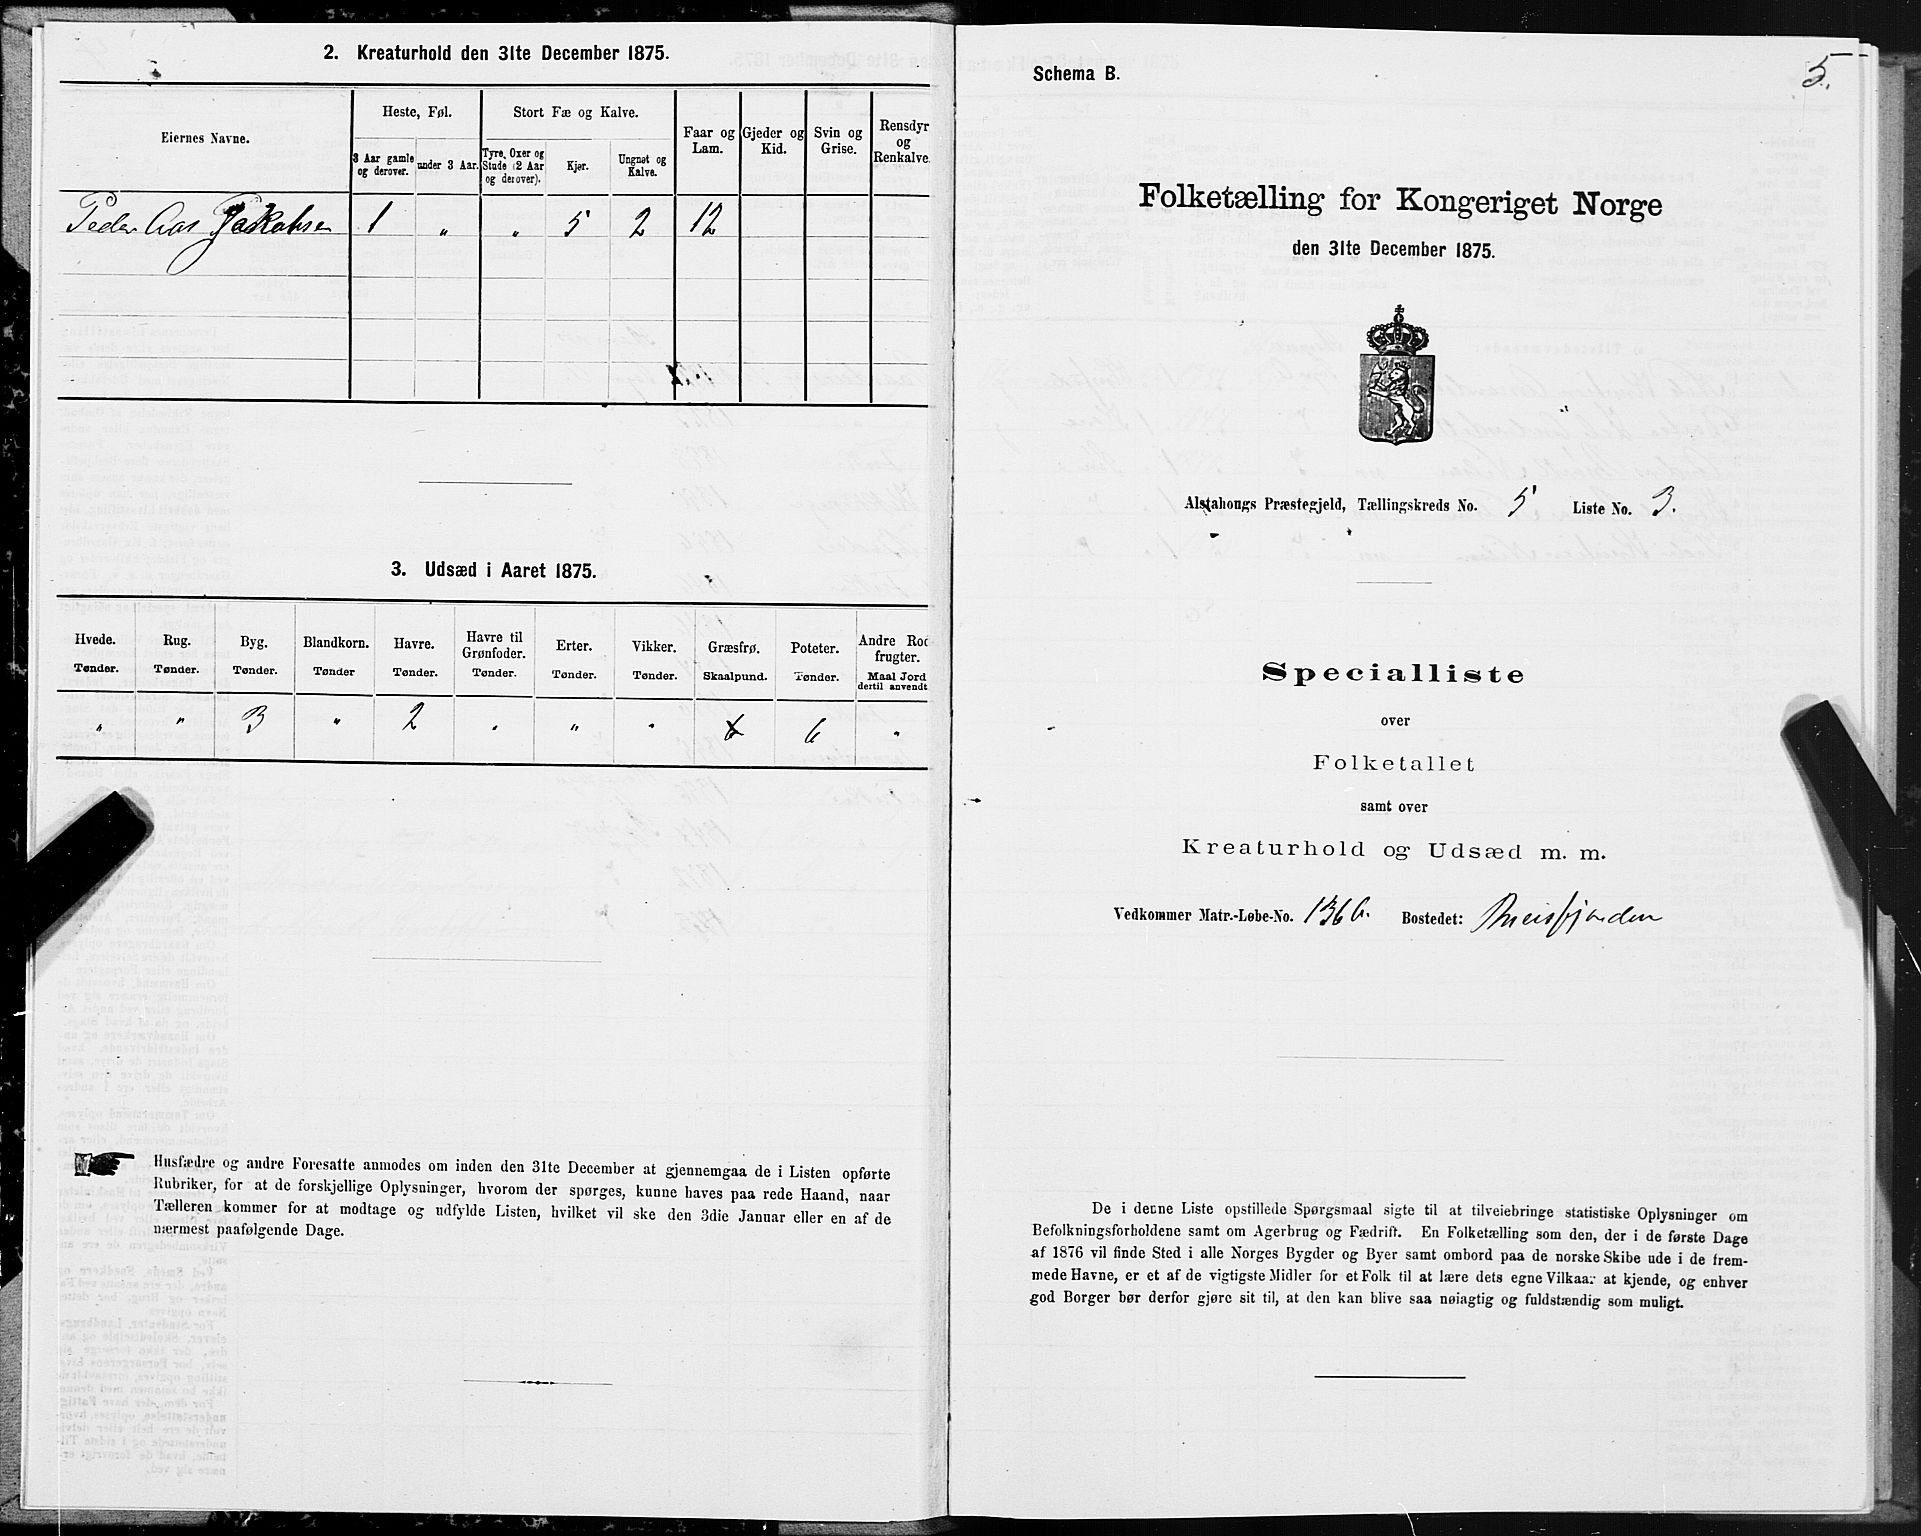 2. Kreaturhold den 31te December 1875.
Eiernes Navne.
Heste, Føl.
Stort Fæ og Kalve.
3 Aar gamle og derover.
under 3 Aar.
Tyre, Oxer og Stude (2 Aar og derover).
Kjør.
Ungnøt og Kalve.
Faar og Lam.
Gjeder og Kid.
Svin og Grise.
Rensdyr og Renkalve.
Peder Aas Jakobsen 1 " " 5 2 12
3. Udsæd i Aaret 1875.
Hvede. Rug. Byg. Blandkorn. Havre. Havre til Grønfoder. Erter. Vikker. Græsfrø. Poteter. Andre Rodfrugter.
Tønder. Tønder. Tønder. Tønder Tønder. Tønder. Tønder. Tønder. Skaalpund. Tønder. Maal Jord dertil anvendt
" " 3 " 2 " " " 6 6 "
Husfædre og andre Foresatte anmodes om inden den 31te December at gjennemgaa de i Listen opførte
Rubriker, for at de forskjellige Oplysninger, hvorom der spørges, kunne haves paa rede Haand, naar
Tælleren kommer for at modtage og udfylde Listen, hvilket vil ske den 3die Januar eller en af de
nærmest paafølgende Dage.
Schema B.
5.
Folketælling for Kongeriget Norge
den 31te December 1875.
Alstahougs Præstegjeld, Tællingskreds No. 5 Liste No. 3.
Specialliste
over
Folketallet
samt over
Kreaturhold og Udsæd m. m.
Vedkommer Matr.-Løbe-No. 136 b. Bostedet:
De i denne Liste opstillede Spørgsmaal sigte til at tilveiebringe statistiske Oplysninger om
Befolkningsforholdene samt om Agerbrug og Fædrift. En Folketælling som den, der i de første Dage
af 1876 vil finde Sted i alle Norges Bygder og Byer samt ombord paa de norske Skibe ude i de frem-
mede Havne, er et af de vigtigste Midler for et Folk til at lære dets egne Vilkaar at kjende, og enhver
god Borger bør derfor gjøre sit til, at den kan blive saa nøiagtig og fuldstændig som muligt.